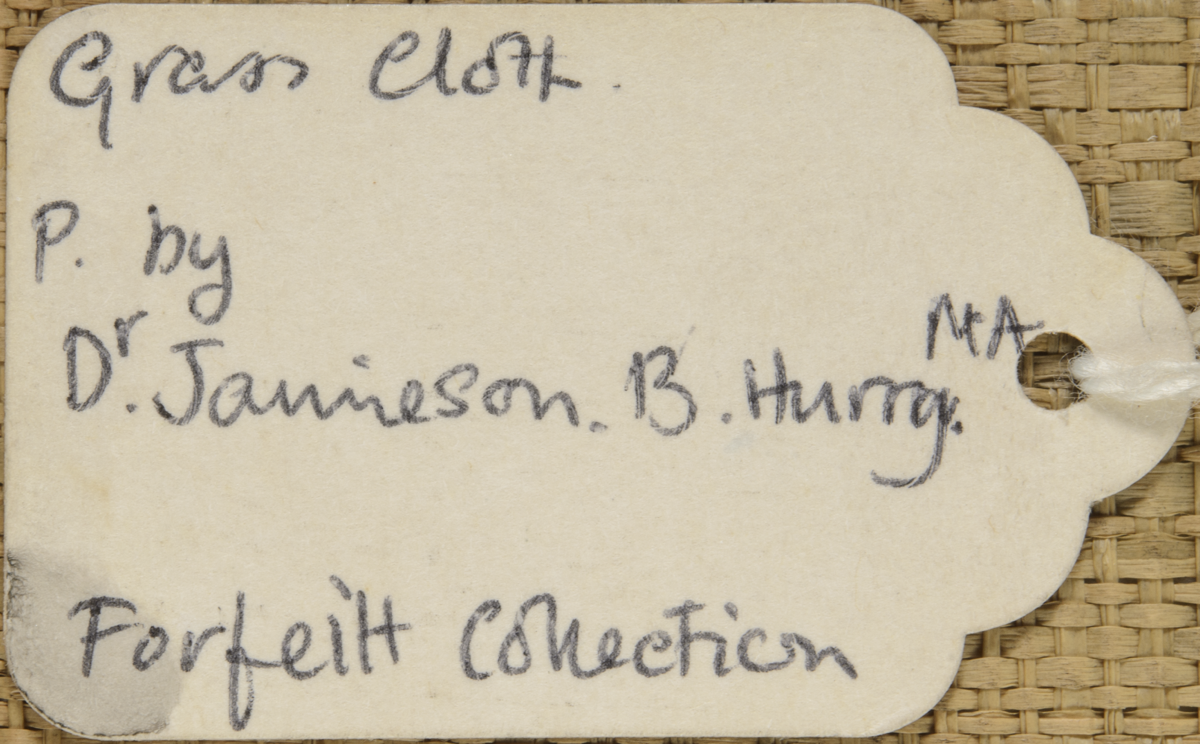 Grass Cloth.
P. by
Dr. Jamieson. B. Hurry. MA
Forfeitt Collection